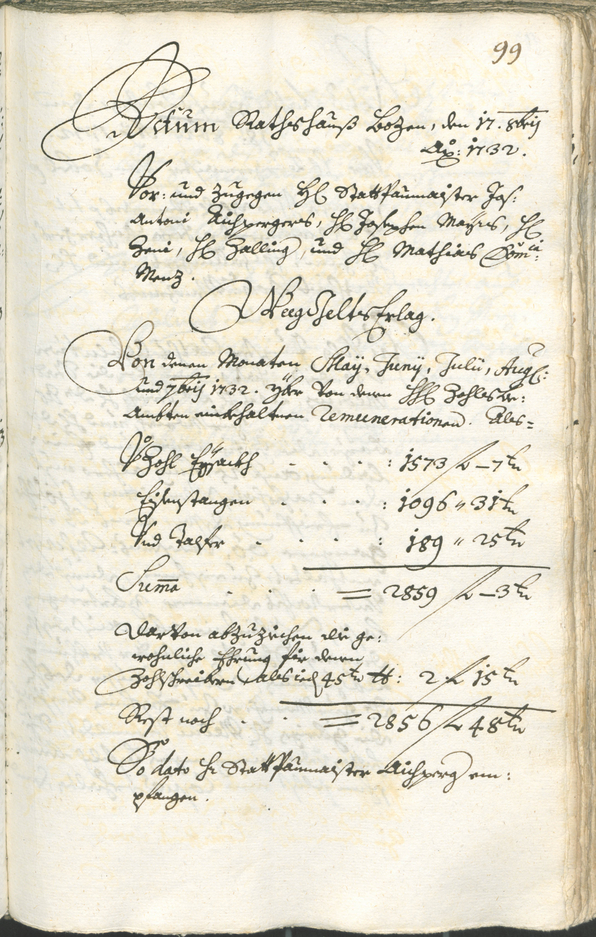 99
Actum Rathshauß Bozen, den 17. 8bris
Ao: 1732.
Vor: und zugegen H: Statt Paumaister Jos:
Antoni Aichpergers, H: Josephen Mayrs, H:
Zeni, H: Zalling, und H: Mathias
Menz.
Weeg Gelts Erlag.
Von denen Monaten May, Juny, July, Aug:
und 7bris 1732. yber von denen H: Zohls
Ambten einbehaltnen Remunerationen. Als=
Zohl Eysackh . . . : 1573 f – 7 kr
Eisenstangen . . . : 1096 " 31 kr
Und Talfer . . . : 189 " 25 kr
Summa . . . = 2859 f – 3 kr
Darvon abzuziehen die ge:
wohnliche Ehrung für denen
Zohlschreibern, als ied 45 kr tt: 2 f 15 kr
Rest noch . . = 2856 f 48 kr
So dato H: Statt Paumaister Aichperg em:
pfangen.